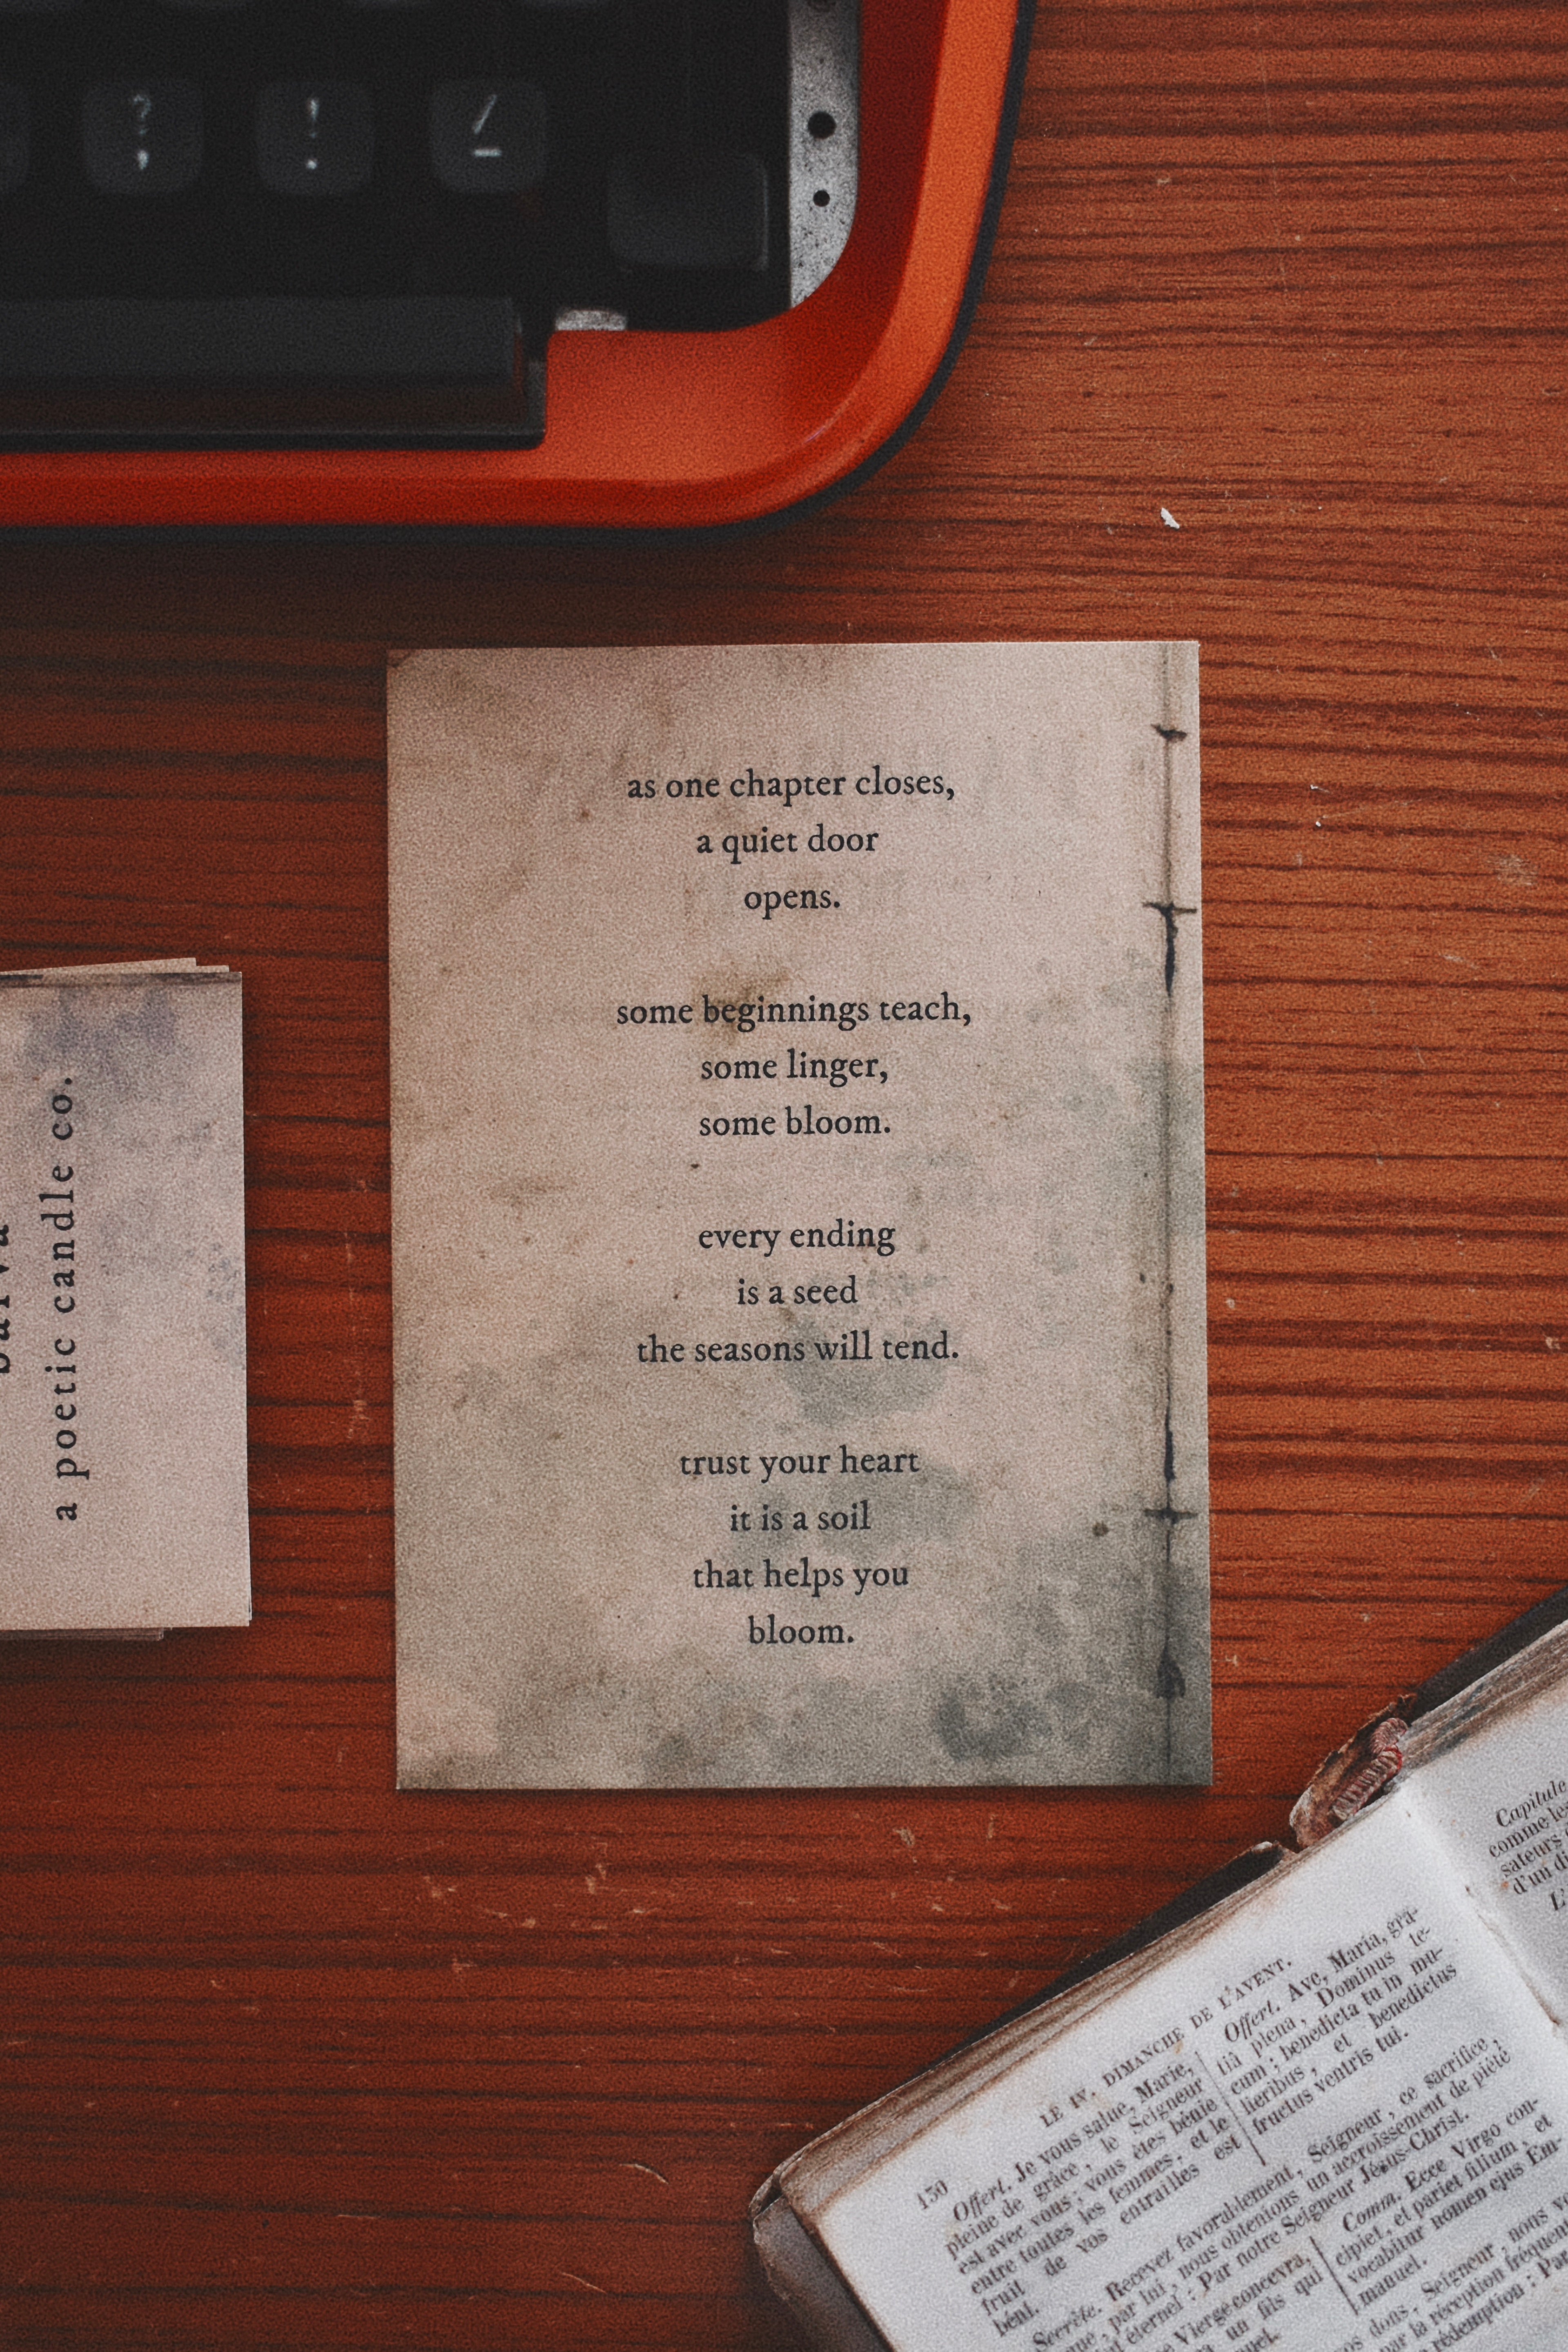 ? ! /
, . –
as one chapter closes,
a quiet door
opens.
some beginnings teach,
some linger,
some bloom.
every ending
is a seed
the seasons will tend.
trust your heart
it is a soil
that helps you
bloom.
a poetic candle co.
150
LE IV. DIMANCHE DE L'AVENT.
Offert. Je vous salue, Marie,
pleine de grâce, le Seigneur
est avec vous; vous êtes bénie
entre toutes les femmes, et le
fruit de vos entrailles est
béni.
Offert. Ave, Maria, grâ-
tiâ plena, Dominus te-
cum; benedicta tu in mu-
lieribus, et benedictus
fructus ventris tui.
Secrète. Recevez favorablement, Seigneur, ce sacrifice,
par lui, nous obtenions un accroissement de piété
éternel: Par notre Seigneur Jésus-Christ.
Vierge concevra,
un fils qui
Comm. Ecce Virgo con-
cipiet, et pariet filium, et
vocabitur nomen ejus Em-
manuel.
dons, Seigneur, nous
la réception
Par
Capitule
comme
sateurs
d'un